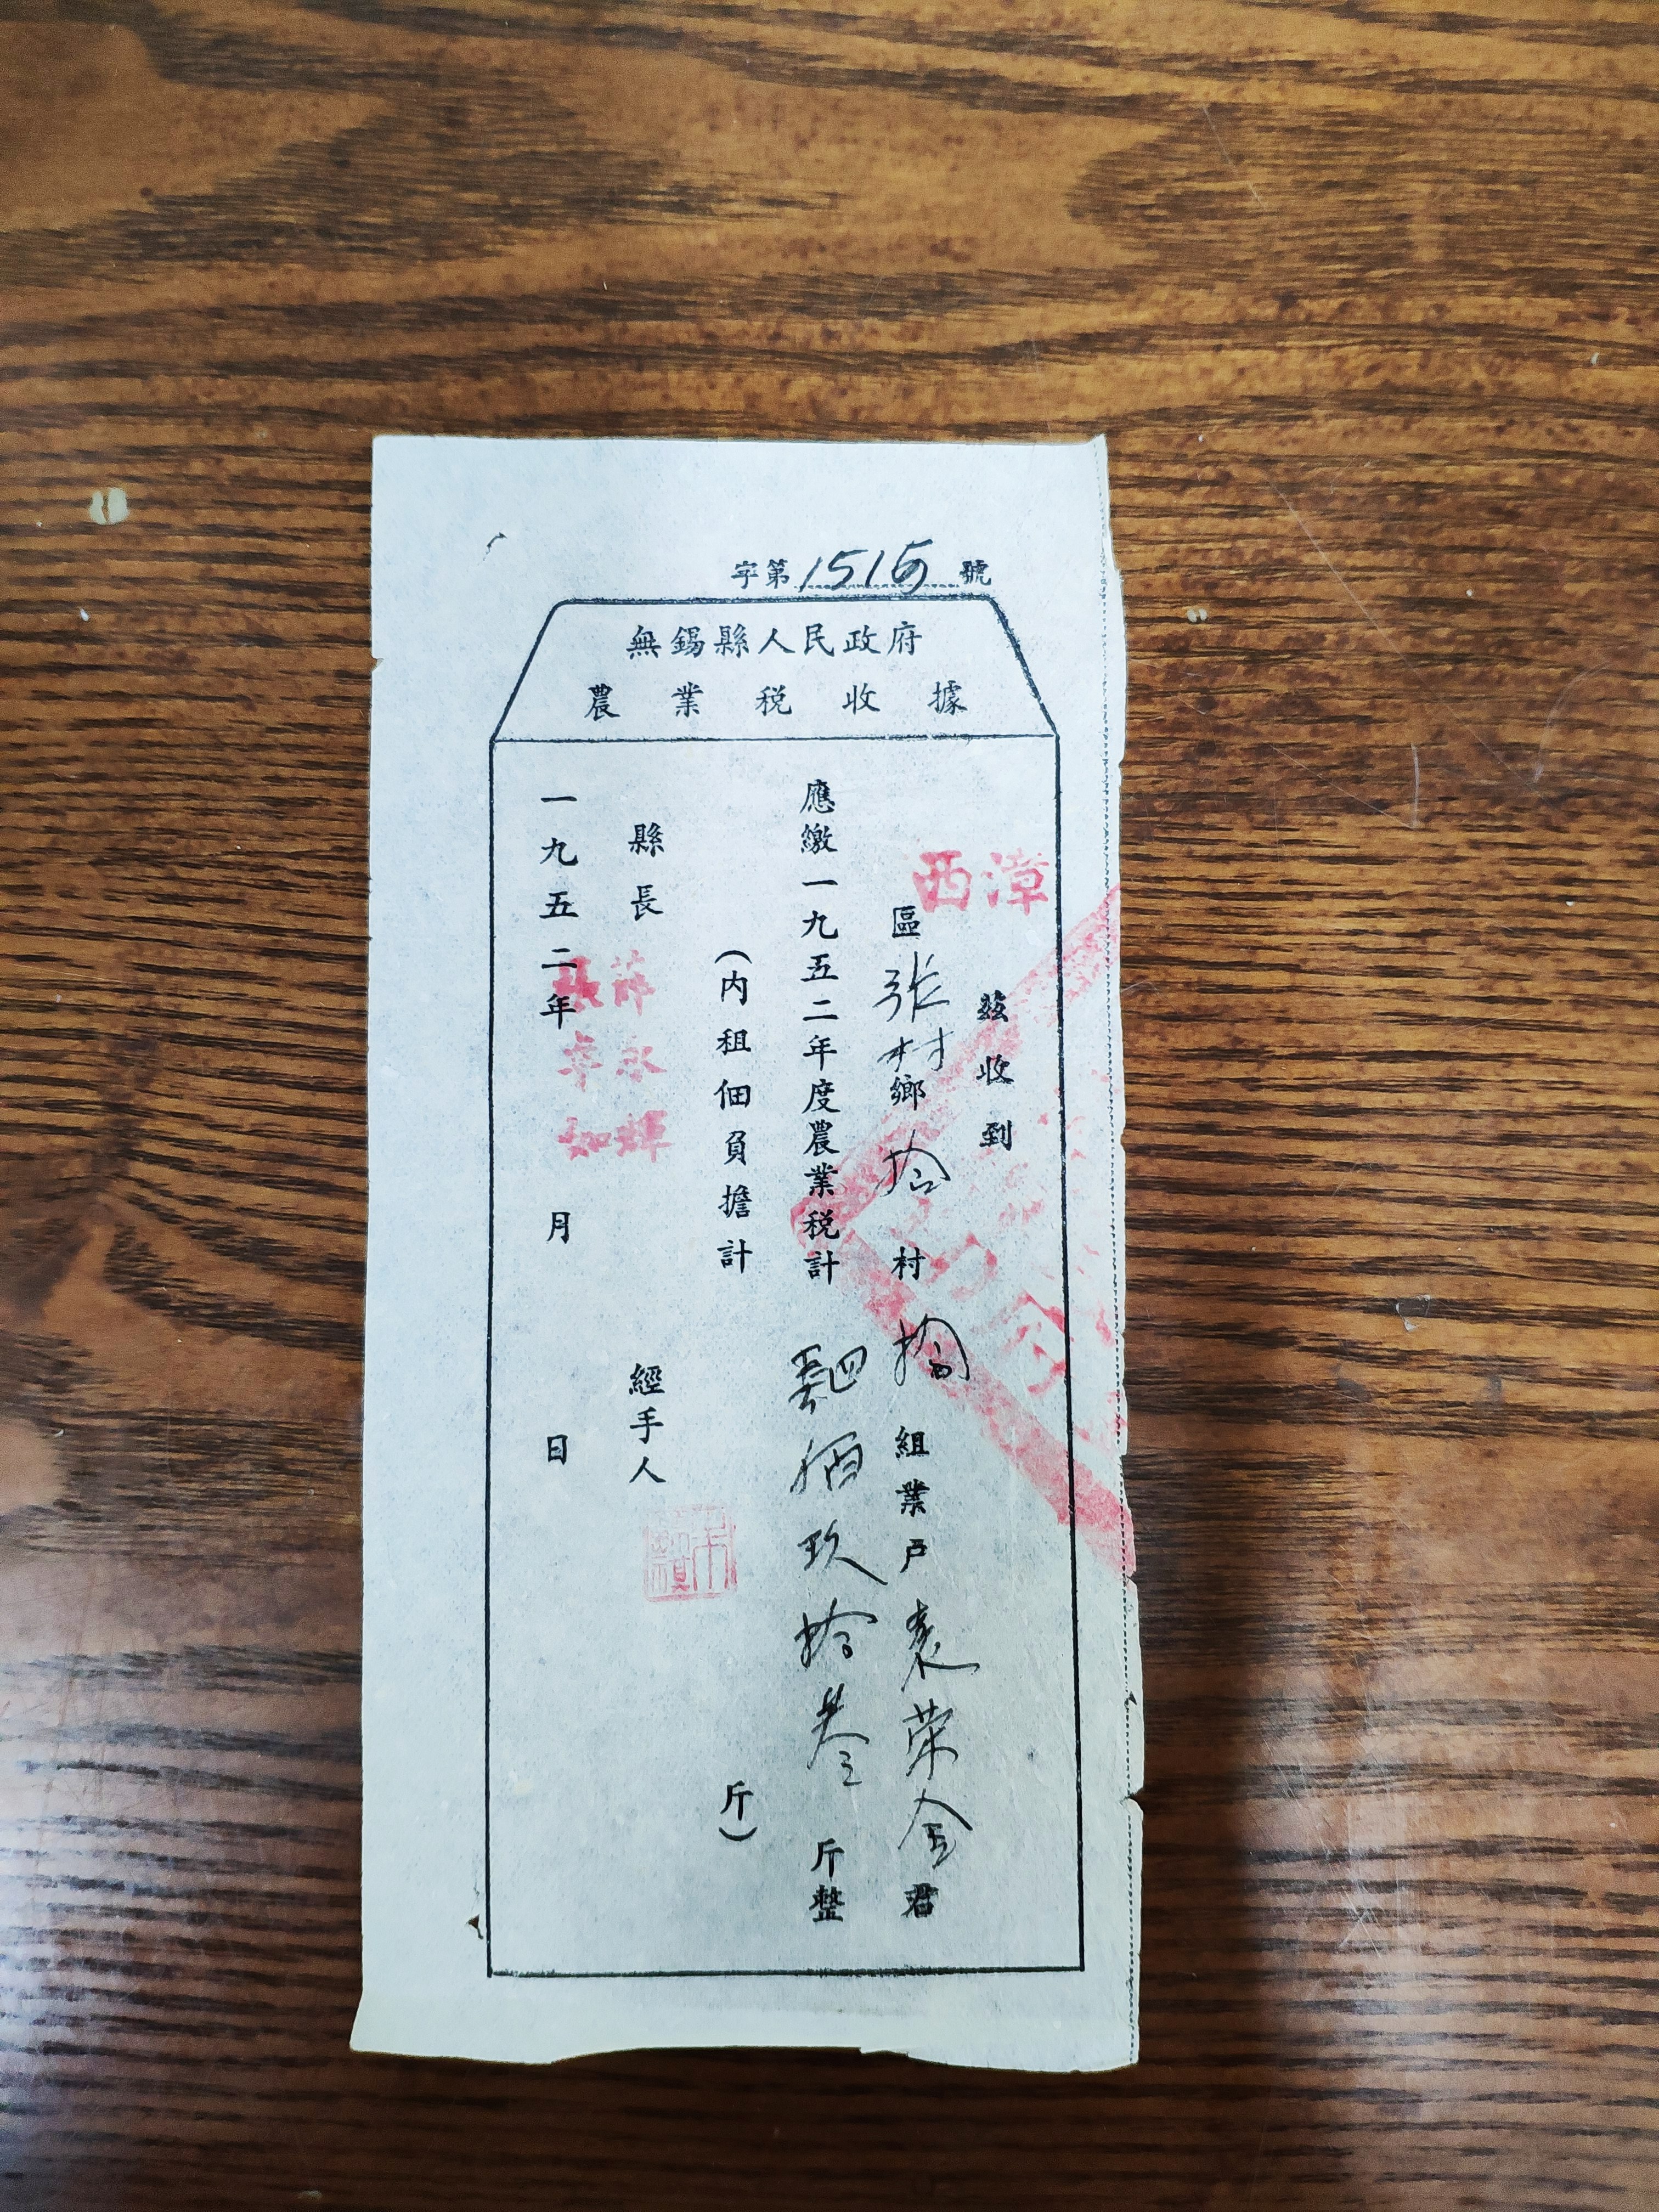 字第1515號
無錫縣人民政府
農業稅收據
茲收到
西漳區張村鄉拾村拾組業戶袁榮金君
應繳一九五二年度農業稅計肆佰玖拾叁斤整
(內租佃負擔計 斤)
縣長 薛永輝 經手人
一九五二年 月 日